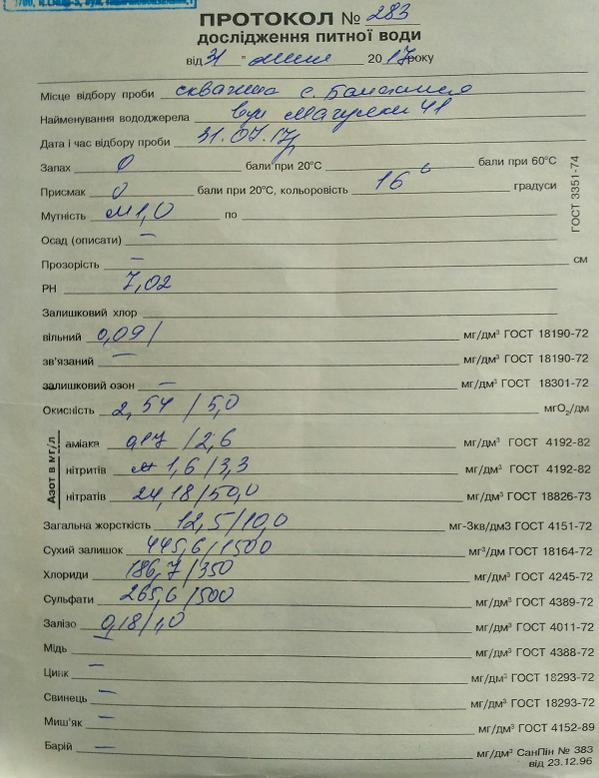 ПРОТОКОЛ № 283
дослідження питної води
від 31 " липня 20 17року
Місце відбору проби скважина с.
Найменування вододжерела вул 41
Дата і час відбору проби 31.07.17р
Запах 0 бали при 20°С бали при 60°С
Присмак 0 бали при 20°С, кольоровість 16° градуси
Мутність м1,0 по
ГОСТ 3351-74
Осад (описати) —
Прозорість — см
РН 7,02
Залишковий хлор
вільний 0,09/ мг/дм³ ГОСТ 18190-72
зв'язаний — мг/дм³ ГОСТ 18190-72
залишковий озон — мг/дм³ ГОСТ 18301-72
Окисність 2,54 / 5,0 мгО₂/дм
Азот в мг/л
аміака /2,6 мг/дм³ ГОСТ 4192-82
нітритів 1,6/3,3 мг/дм³ ГОСТ 4192-82
нітратів 24,18/50,0 мг/дм³ ГОСТ 18826-73
Загальна жорсткість 12,5/10,0 мг-3кв/дм3 ГОСТ 4151-72
Сухий залишок 445,6/1500 мг³/дм ГОСТ 18164-72
Хлориди 186,7/350 мг/дм³ ГОСТ 4245-72
Сульфати 265,6/500 мг/дм³ ГОСТ 4389-72
Залізо 0,18/1,0 мг/дм³ ГОСТ 4011-72
Мідь — мг/дм³ ГОСТ 4388-72
Цинк — мг/дм³ ГОСТ 18293-72
Свинець — мг/дм³ ГОСТ 18293-72
Миш'як — мг/дм³ ГОСТ 4152-89
Барій — мг/дм³ СанПін № 383
від 23.12.96